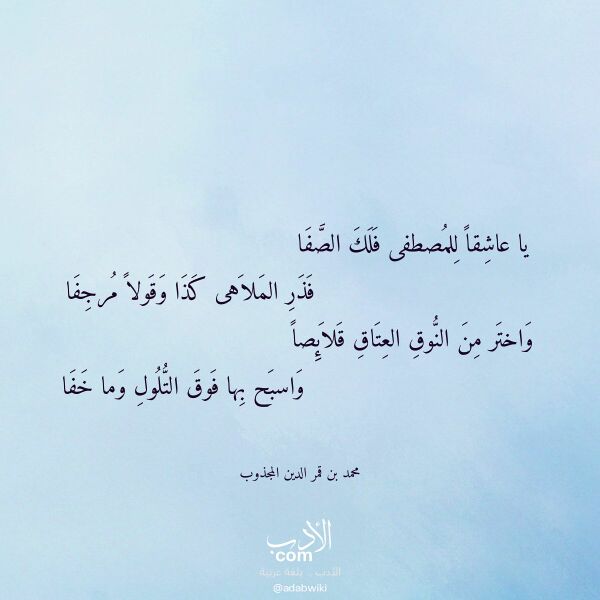 يا عاشِقاً لِلمُصطفى فَلَكَ الصَّفَا
فَذَرِ المَلاَهى كَذَا وَقَولاً مُرجِفَا
وَاختَر مِنَ النُّوقِ العِتَاقِ قَلاَئِصاً
وَاسبَح بِها فَوقَ التُّلُولِ وَما خَفَا
محمد بن قمر الدين المجذوب
الأدب
com
الأدب .. بلغة عربية
@adabwiki